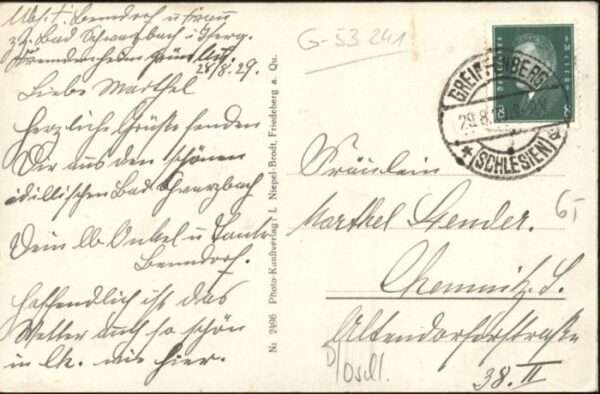 Abs. F. Benndorf u. Frau
z. Z. Bad Schwarzbach i. Isergeb.
Fremdenheim
28/8. 29.
Liebe Marthel
Herzliche Grüße senden
Dir aus dem schönen
idillischen Bad Schwarzbach
Dein lb Onkel u Tante
Benndorf.
Hoffentlich ist das
Wetter auch so schön
in Ch. wie hier.
G-53 241
No 2496 Photo-Kunstverlag L. Niepel-Brodt, Friedeberg a. Qu.
DEUTSCHES REICH
8 8
GREIFFENBERG
29.8.
(SCHLESIEN)
Fräulein
Marthel Stender.
Chemnitz. S.
Altendorferstraße
38. II
6,-